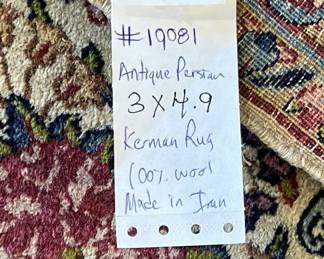 #19081
Antique Persian
3 X 4.9
Kerman Rug
100% wool
Made in Iran